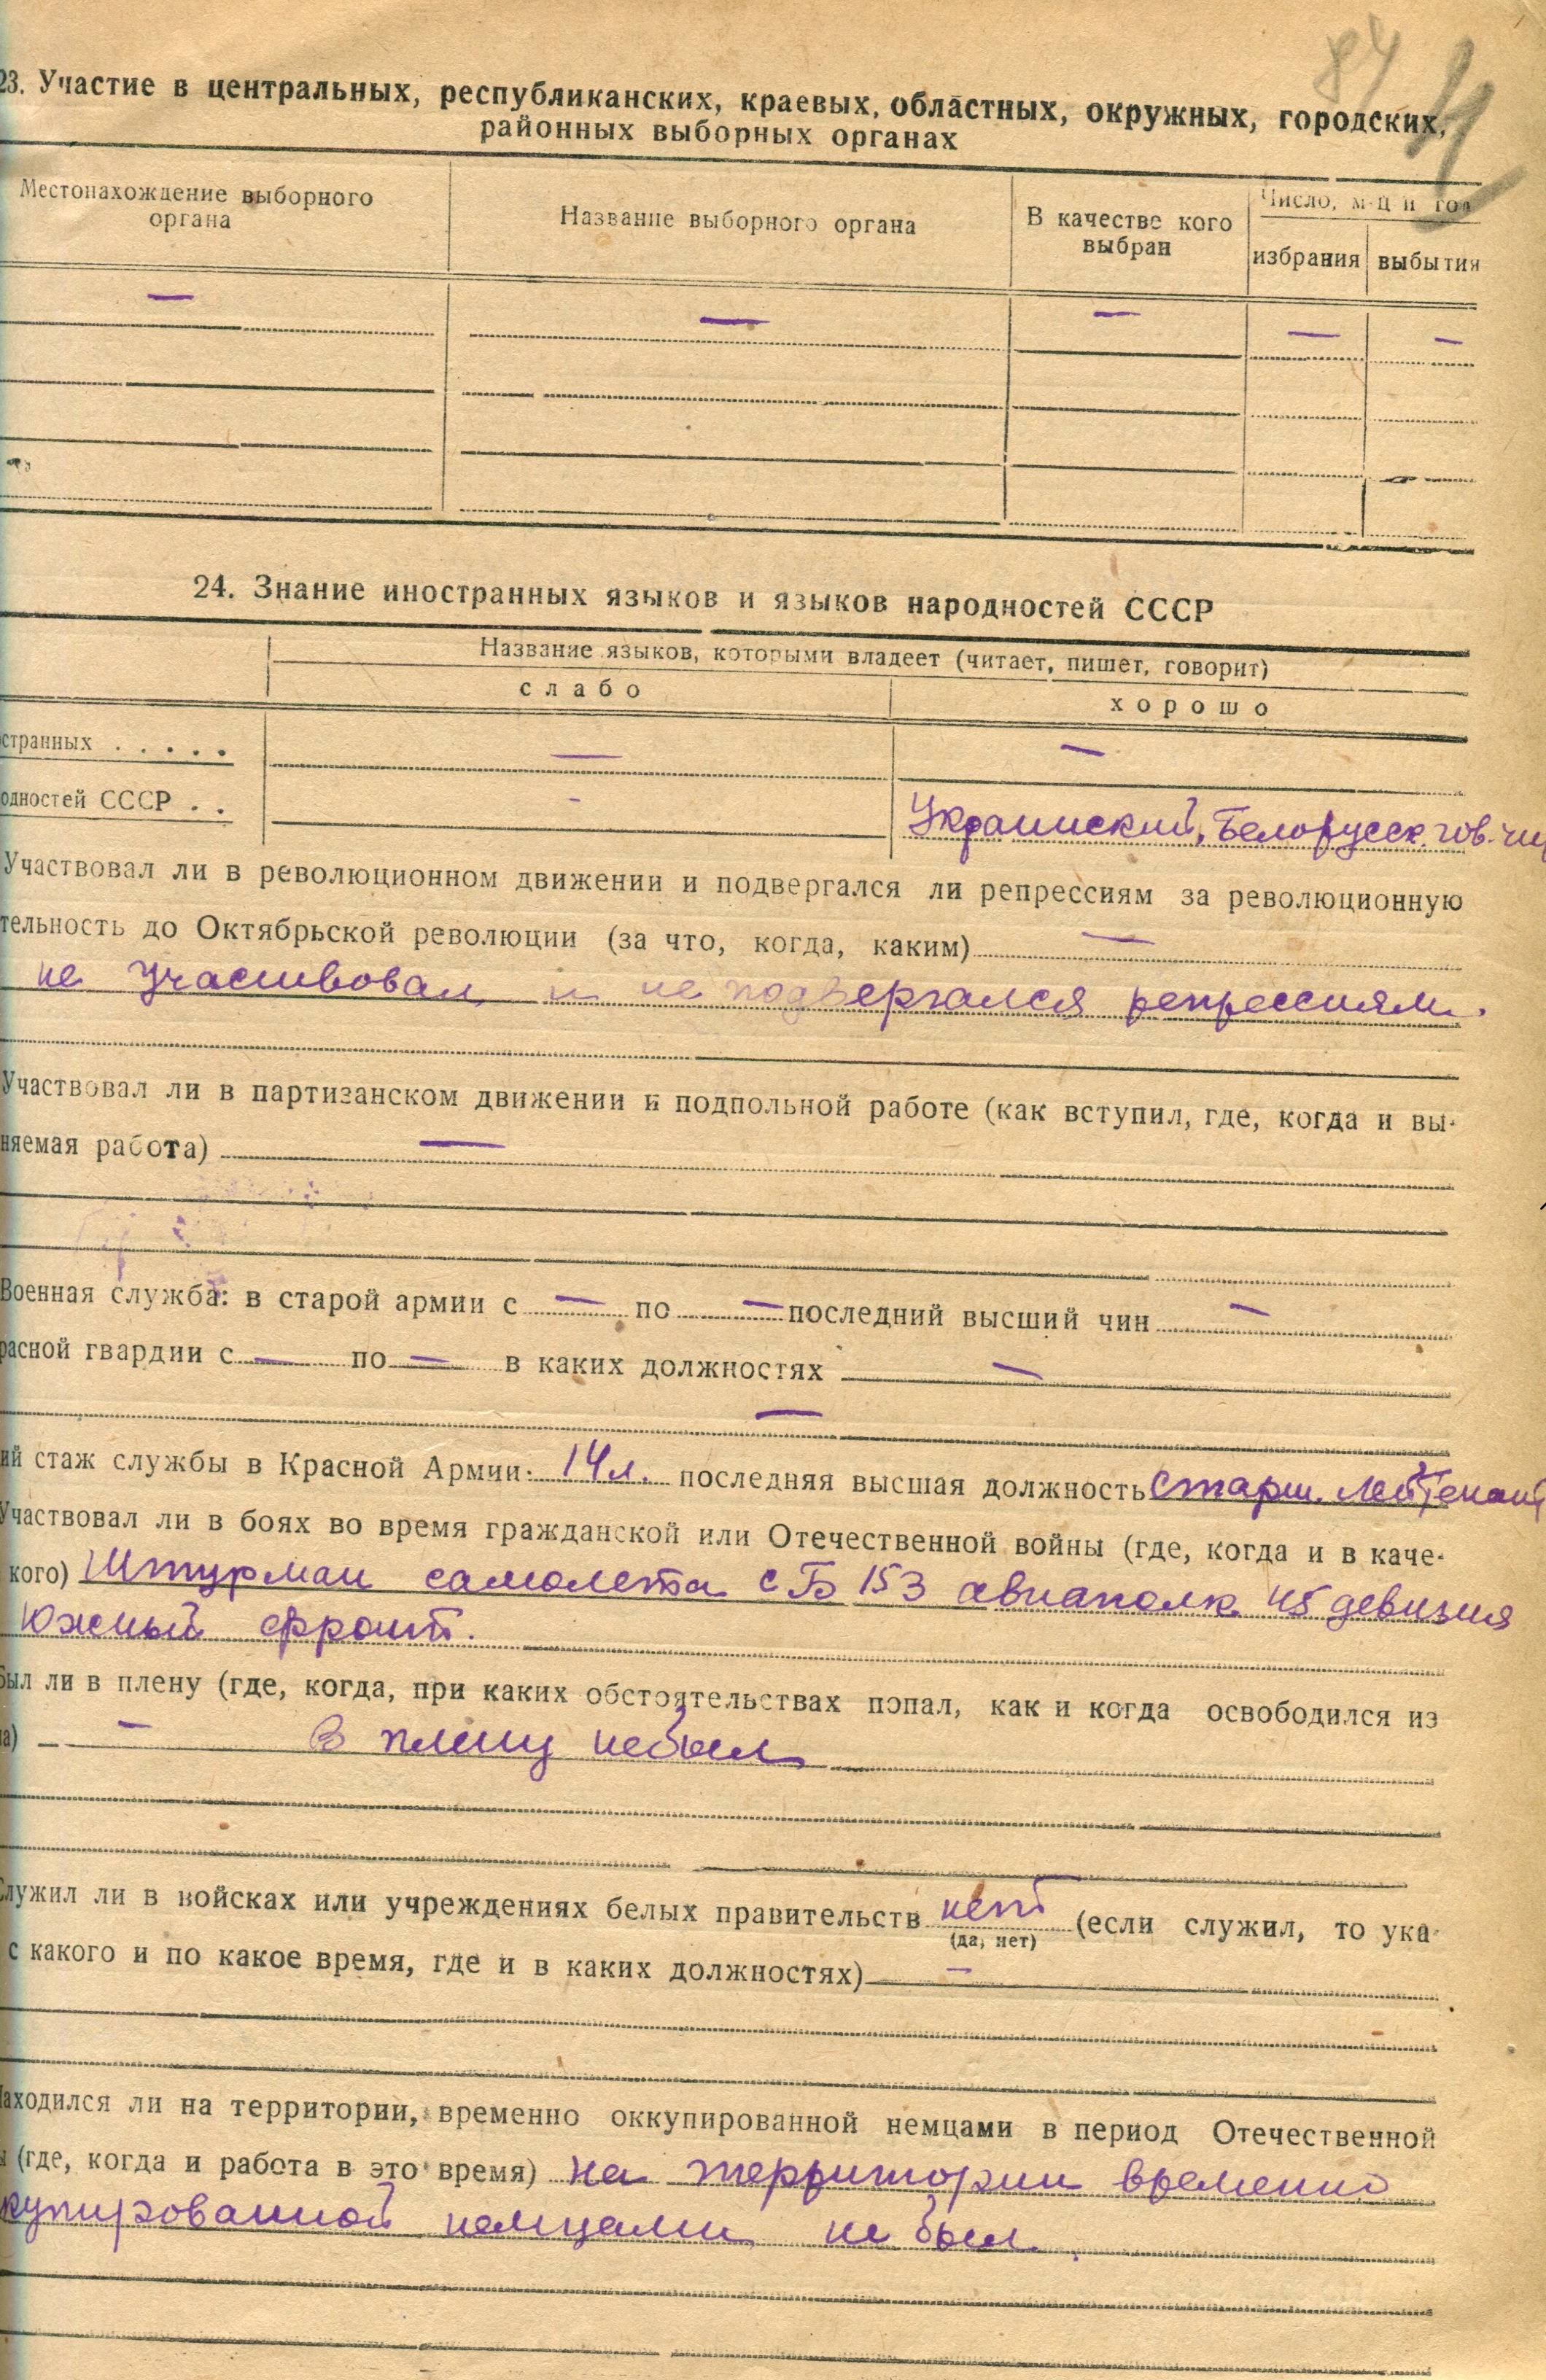 84
23. Участие в центральных, республиканских, краевых, областных, окружных, городских,
районных выборных органах
Местонахождение выборного
органа
Название выборного органа
В качестве кого
выбран
Число, м-ц и год
избрания
выбытия
— — — — —
24. Знание иностранных языков и языков народностей СССР
Название языков, которыми владеет (читает, пишет, говорит)
слабо
хорошо
странных . . . . . — —
одностей СССР . . - Украинский, Белорусск. гов. чи
Участвовал ли в революционном движении и подвергался ли репрессиям за революционную
тельность до Октябрьской революции (за что, когда, каким) —
не участвовал и не подвергался репрессиям.
Участвовал ли в партизанском движении и подпольной работе (как вступил, где, когда и вы-
няемая работа) —
Военная служба: в старой армии с — по — последний высший чин —
расной гвардии с — по — в каких должностях —
—
ий стаж службы в Красной Армии 14 л. последняя высшая должность Старш. Лейтенант
Участвовал ли в боях во время гражданской или Отечественной войны (где, когда и в каче-
кого) Штурман самолета СБ 153 авиаполк 45 девизия
Южный фронт.
Был ли в плену (где, когда, при каких обстоятельствах попал, как и когда освободился из
а) — В плену небыл
Служил ли в войсках или учреждениях белых правительств нет (если служил, то ука-
(да, нет)
с какого и по какое время, где и в каких должностях) —
Находился ли на территории, временно оккупированной немцами в период Отечественной
ы (где, когда и работа в это время) на территории временно
купированной немцами не был.